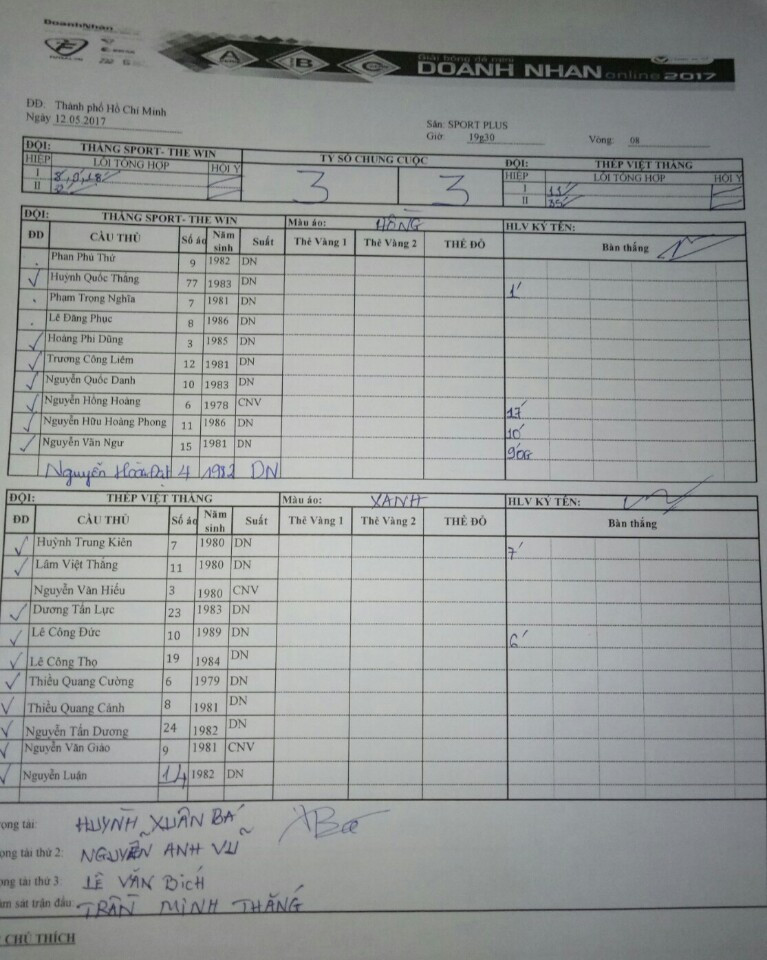 DoanhNhân
A B C
Giải bóng đá mini
DOANH NHÂN online 2017
ĐĐ: Thành phố Hồ Chí Minh
Ngày 12.05.2017
Sân: SPORT PLUS
Giờ: 19g30 Vòng: 08
ĐỘI: THẮNG SPORT- THE WIN TỶ SỐ CHUNG CUỘC ĐỘI: THÉP VIỆT THẮNG
HIỆP LỖI TỔNG HỢP HỘI Ý 3 3 HIỆP LỖI TỔNG HỢP HỘI Ý
I I 11'
II II 35'
ĐỘI: THẮNG SPORT- THE WIN Màu áo: HỒNG HLV KÝ TÊN:
ĐD CẦU THỦ Số áo Năm sinh Suất Thẻ Vàng 1 Thẻ Vàng 2 THẺ ĐỎ Bàn thắng
Phan Phú Thứ 9 1982 DN
Huỳnh Quốc Thăng 77 1983 DN 1'
Phạm Trọng Nghĩa 7 1981 DN
Lê Đăng Phục 8 1986 DN
Hoàng Phi Dũng 3 1985 DN
Trương Công Liêm 12 1981 DN
Nguyễn Quốc Danh 10 1983 DN
Nguyễn Hồng Hoàng 6 1978 CNV 17'
Nguyễn Hữu Hoàng Phong 11 1986 DN 10'
Nguyễn Văn Ngư 15 1981 DN
Nguyễn 4 1982 DN
ĐỘI: THÉP VIỆT THẮNG Màu áo: XANH HLV KÝ TÊN:
ĐD CẦU THỦ Số áo Năm sinh Suất Thẻ Vàng 1 Thẻ Vàng 2 THẺ ĐỎ Bàn thắng
Huỳnh Trung Kiên 7 1980 DN 7'
Lâm Việt Thắng 11 1980 DN
Nguyễn Văn Hiếu 3 1980 CNV
Dương Tấn Lực 23 1983 DN
Lê Công Đức 10 1989 DN 6'
Lê Công Thọ 19 1984 DN
Thiều Quang Cường 6 1979 DN
Thiều Quang Cảnh 8 1981 DN
Nguyễn Tấn Dương 24 1982 DN
Nguyễn Văn Giáo 9 1981 CNV
Nguyễn Luân 14 1982 DN
ọng tài: HUỲNH XUÂN BÁ
ọng tài thứ 2: NGUYỄN ANH VŨ
ọng tài thứ 3: LÊ VĂN BÍCH
ám sát trận đấu: TRẦN MINH THẮNG
CHÚ THÍCH